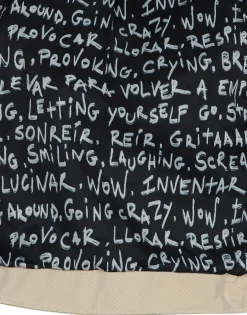 AROUND, GOING CRAZY, WOW, I
PROVOCAR, LLORAR, RESPIR
ING, PROVOKING, CRYING, BRE
LEVAR PARA VOLVER A EMP
NG, LETTING YOURSELF GO, ST
SONREIR, REIR, GRITAAA
NG, SMILING, LAUGHING, SCRE
LUCINAR, WOW, INVENTAR
AROUND, GOING CRAZY, WOW, I
PROVOCAR, LLORAR, RESPIR
NG, PROVOKING, CRYING, BRE